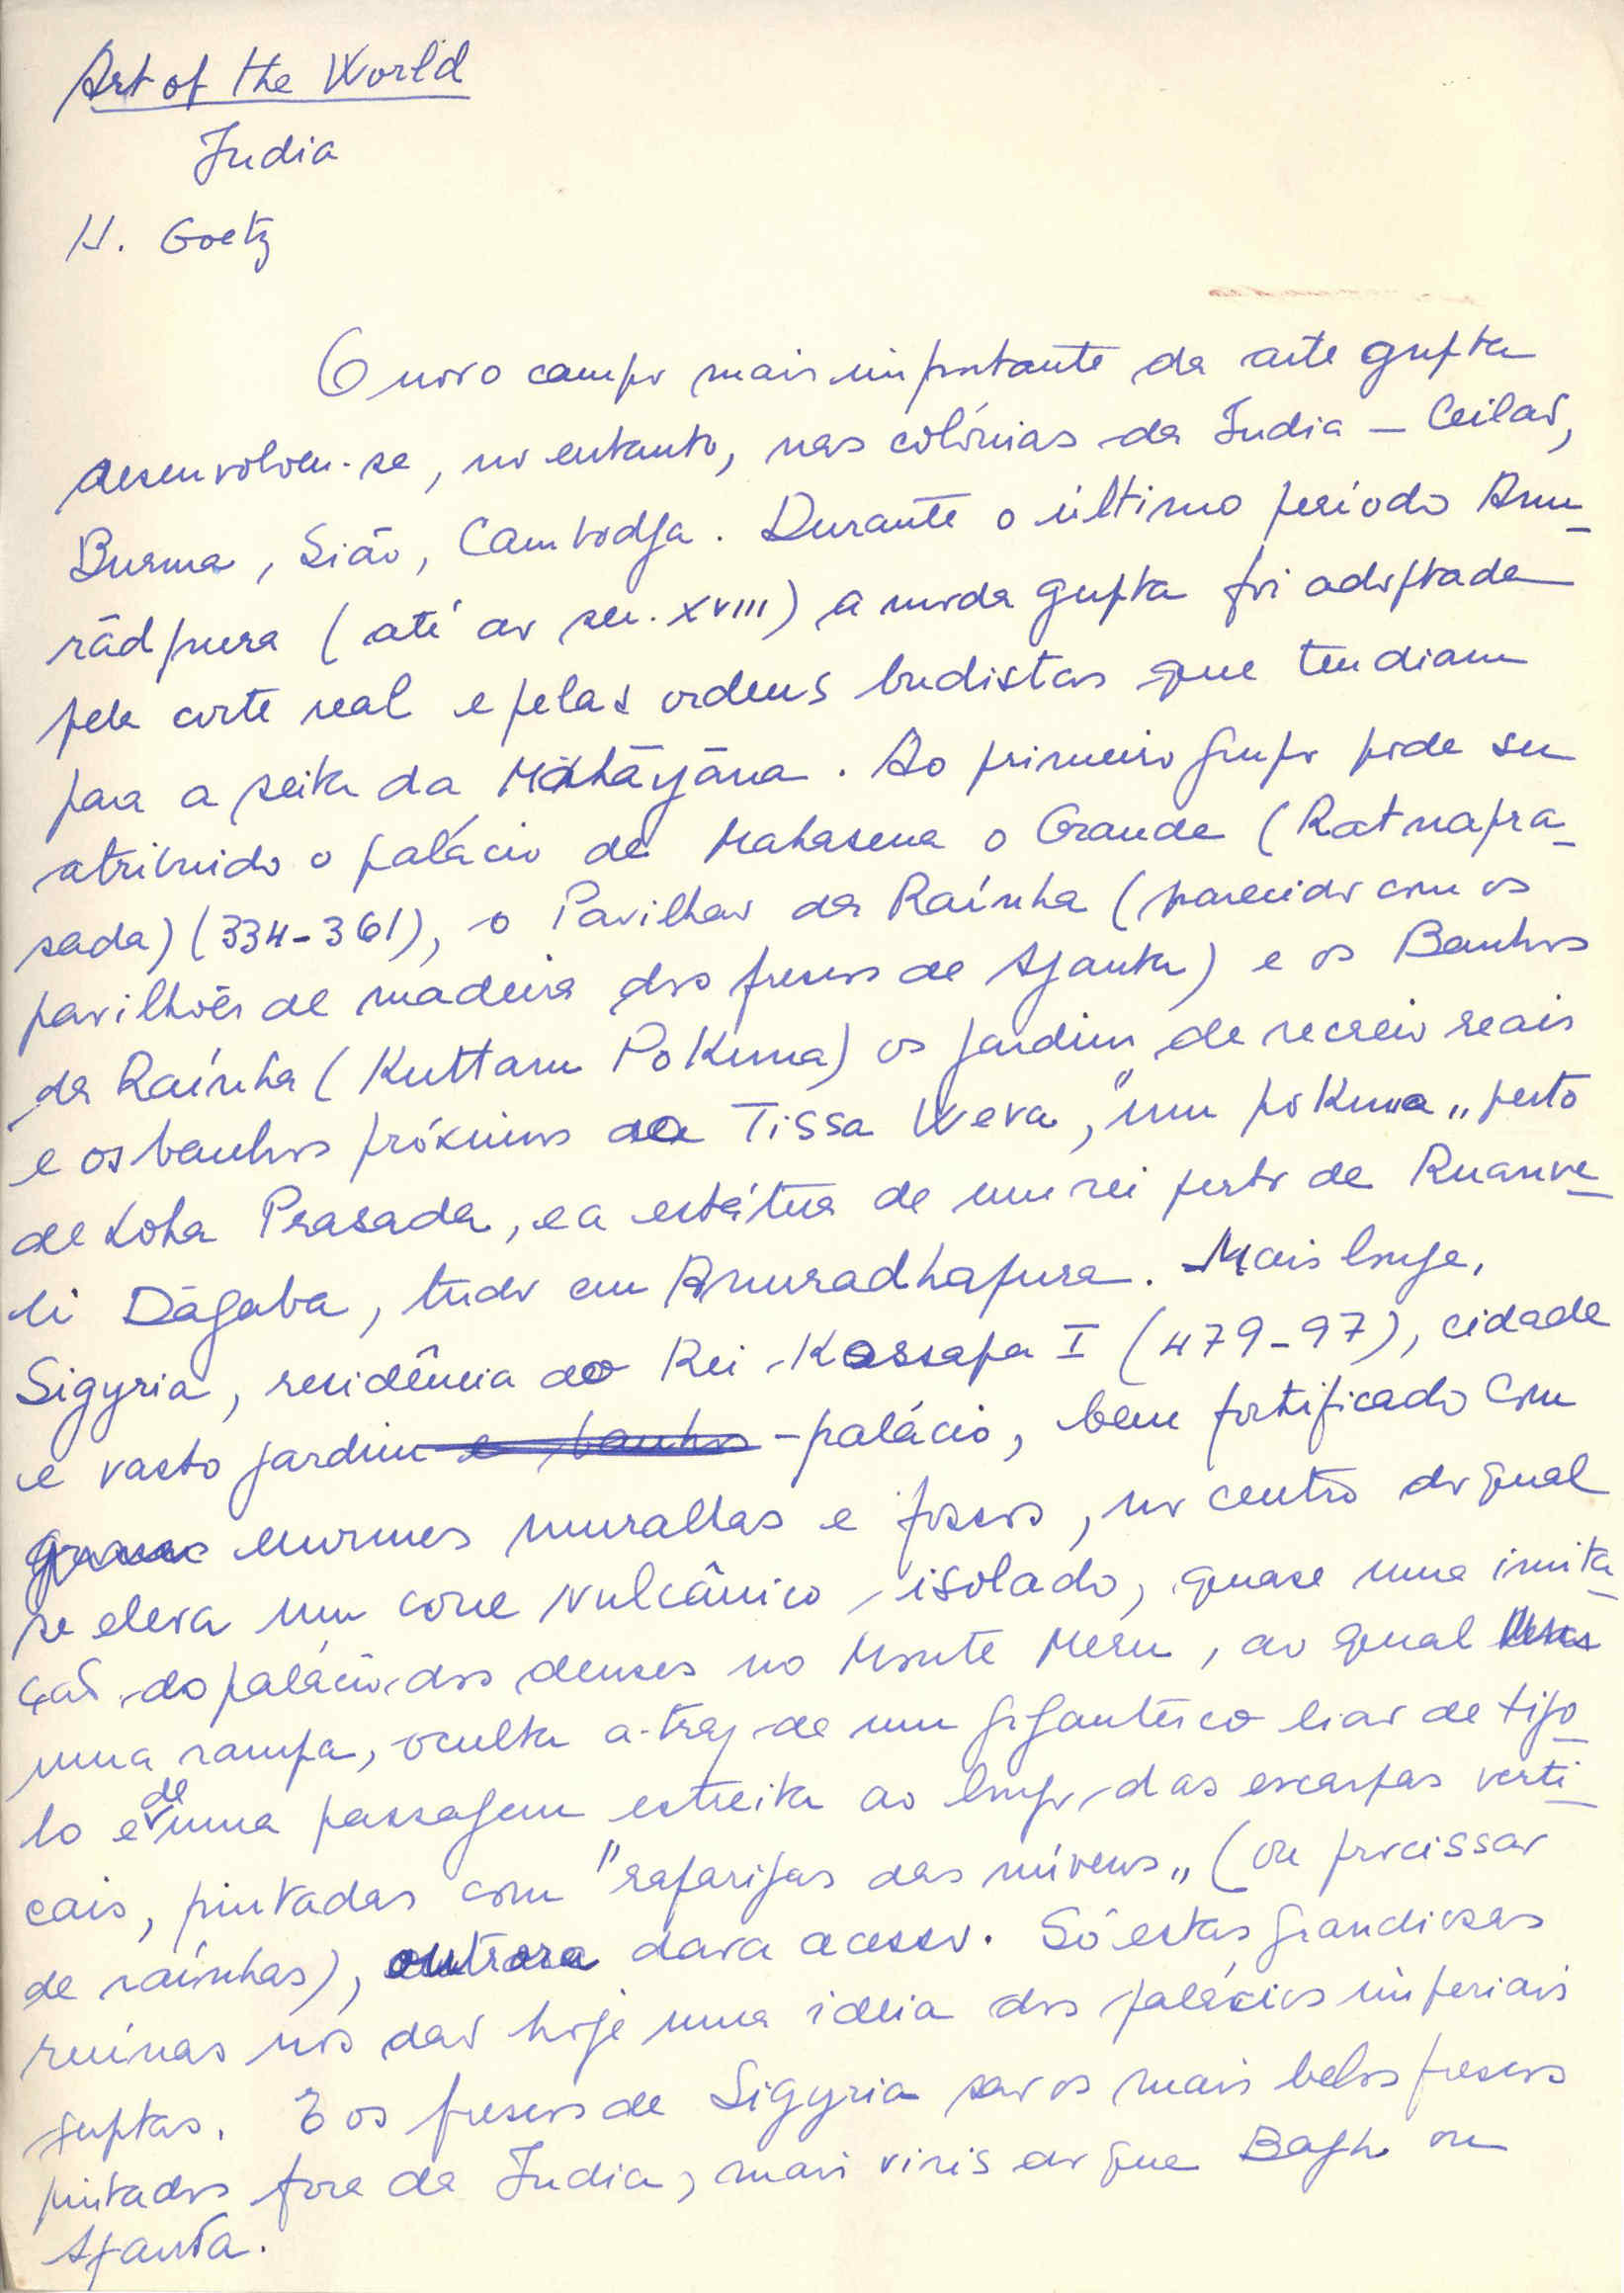 Art of the World
India
H. Goetz
O novo campo mais importante da arte gupta
desenvolveu-se, no entanto, nas colónias da India – Ceilão,
Burma, Sião, Cambodja. Durante o último período Anu-
rādpura (até ao sec. XVIII) a moda gupta foi adoptada
pela corte real e pelas ordens budistas que tendiam
para a seita da Māhāyāna. Ao primeiro grupo pode ser
atribuido o palácio de Mahasena o Grande (Ratnapra-
sada) (334-361), o Pavilhão da Raínha (parecido com os
pavilhões de madeira dos frescos de Ajanta) e os Banhos
da Raínha (Kuttam Pokuna) os jardins de recreio reais
e os banhos próximos da Tissa Weva, "um pokuna" perto
de Loha Prasada, e a estátua de um rei perto de Ruanve-
li Dāgaba, tudo em Anuradhapura. Mais longe,
Sigyria, residência do Rei Kassapa I (479-97), cidade
e vasto jardim e banhos - palácio, bem fortificado com
enormes muralhas e fossos, no centro do qual
se eleva um cone vulcânico isolado, quase uma imita-
ção do palácio dos deuses no Monte Meru, ao qual
uma rampa, oculta a-traz de um gigantesco lião de tijo-
lo e de uma passagem estreita ao longo das escarpas verti-
cais, pintadas com "raparigas das núvens" (ou procissão
de raínhas), outrora dava acesso. Só estas grandiosas
ruínas nos dão hoje uma ideia dos palácios imperiais
guptas. E os frescos de Sigyria são os mais belos frescos
pintados fora da India, mais viris do que Bagh ou
Ajanta.